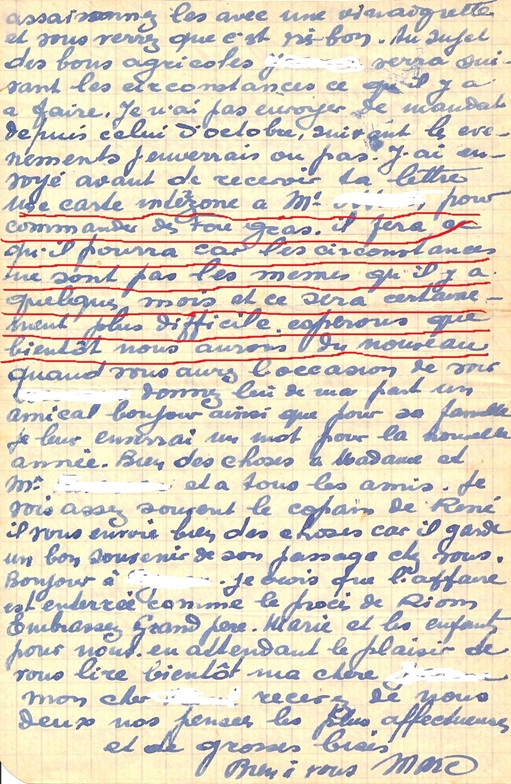 assaisonnez les avec une vinaigrette
et vous verrez que c'est très bon. Au sujet
des bons agricoles verra sui-
vant les circonstances ce qu'il y a
a faire. Je n'ai pas envoyer de mandat
depuis celui d'octobre, suivant le eve-
nements j'enverrais ou pas. J'ai en-
voyé avant de recevoir ta lettre
une carte interzone a Mr. pour
commander des foie gras. il fera ce
qu'il pourra car les circonstances
ne sont pas les memes qu'il y a
quelques mois et ce sera certaine-
ment plus difficile. esperons que
bientôt nous aurons du nouveau
quand vous aurez l'occasion de voir
donnez lui de ma part un
amical bonjour ainsi que pour sa famille
je leur enverrai un mot pour la nouvelle
année. Bien des choses a Madame et
Mr et a tous les amis. Je
vois assez souvent le copain de René
il vous envoie bien des choses car il garde
un bon souvenir de son passage chez vous.
Bonjour à . Je crois que l'affaire
est enterrée comme le procès de Riom
Embrassez Grand père. Marie et les enfants
pour nous. en attendant le plaisir de
vous lire bientôt ma chère
mon cher recevez de nous
deux nos pensées les plus affectueuses
et de grosses bises
Bien à vous Marc